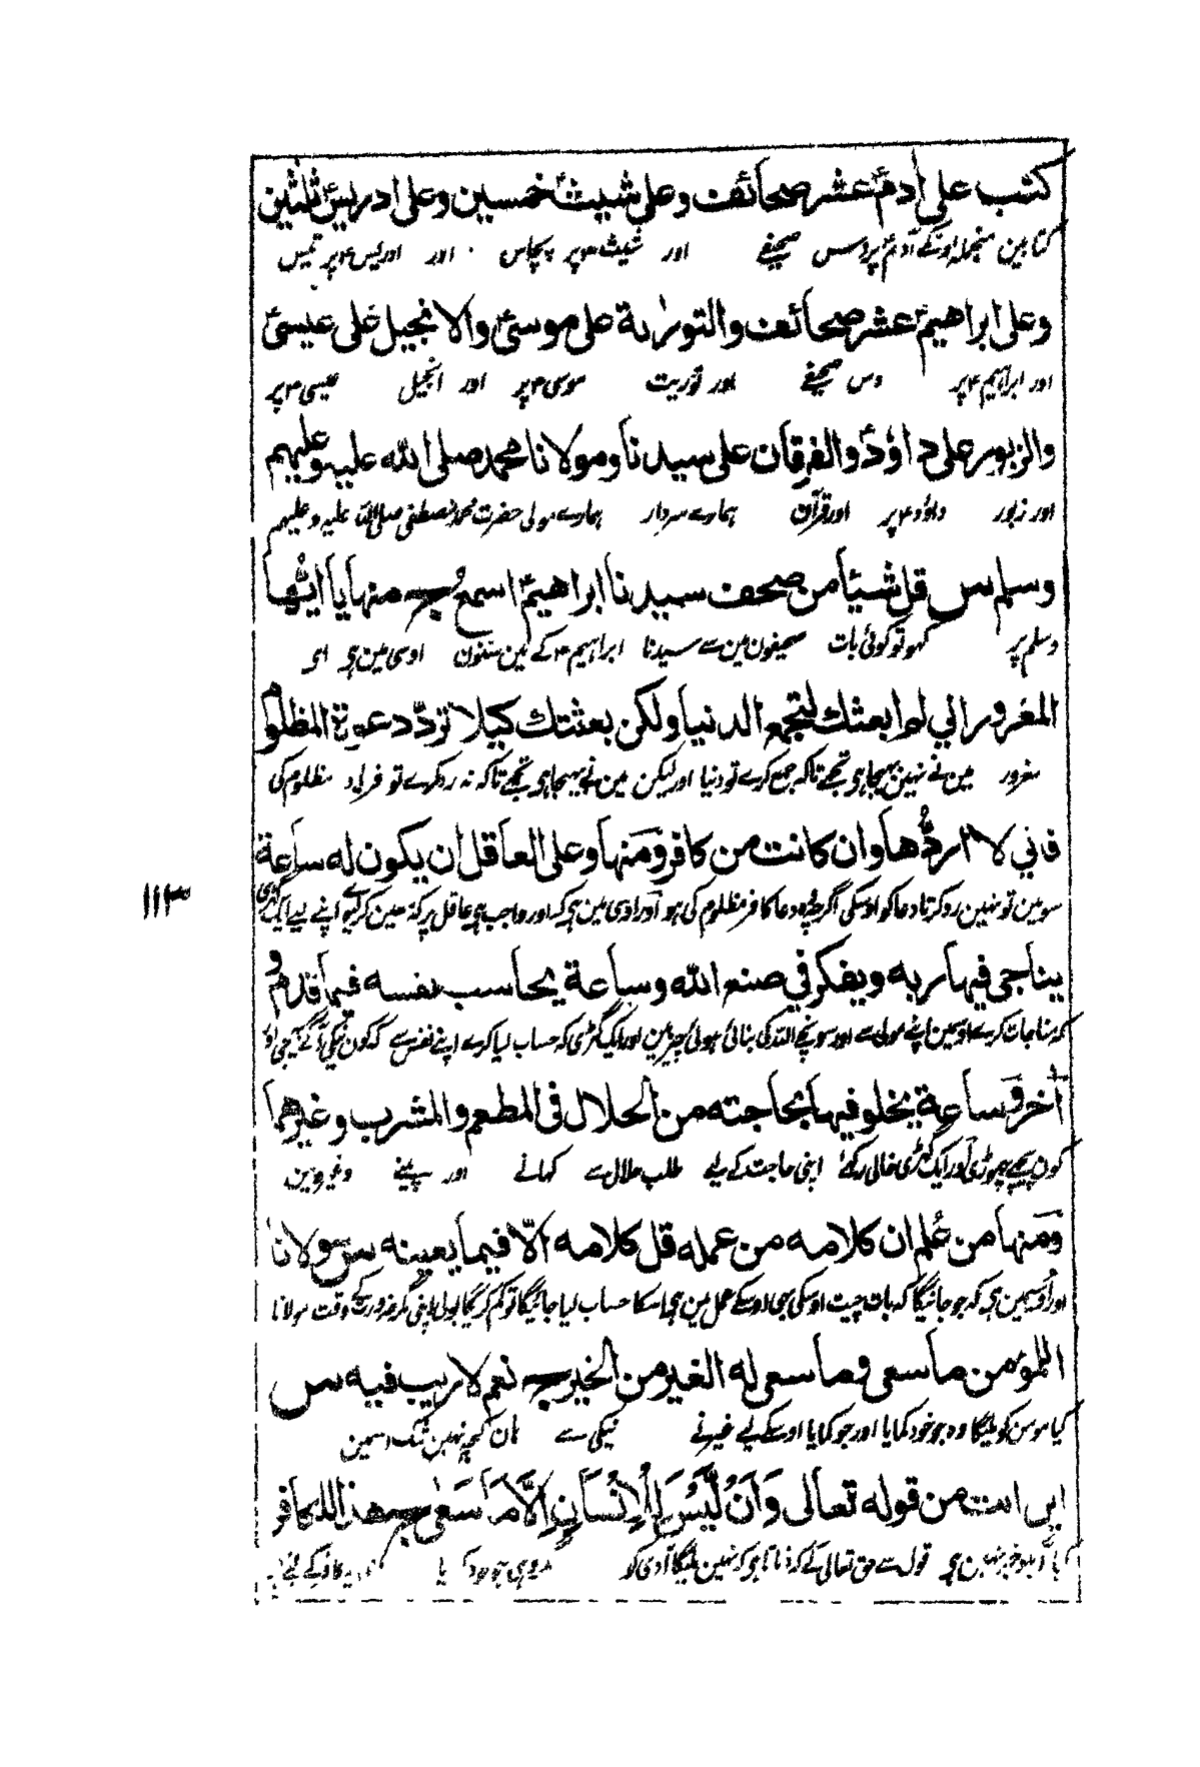 كتب على ادمؑ عشر صحائف وعلى شيثؑ خمسين وعلى ادريسؑ ثلثين
کتابین منجملہ اونکے آدمؑ پر دس صحیفے اور شیث؏ پر پچاس اور ادریس؏ پر تیس
وعلى ابراهيمؑ عشر صحائف والتورٰية على موسىؑ والانجيل على عيسىؑ
اور ابراہیم؏ پر دس صحیفے اور توریت موسی؏ پر اور انجیل عیسی؏ پر
والزبور على داؤدؑ والفرقان على سيدنا ومولانا محمد صلى الله عليه وعليهم
اور زبور داؤد؏ پر اور قرآن ہمارے سردار ہمارے مولی حضرت محمد مصطفی صلی اللہ علیہ وعلیہم
وسلم س قل شيئا من صحف سيدنا ابراهيمؑ اسمعُ ج منها يا ايها
وسلم پر کہو تو کوئی بات صحیفون مین سے سیدنا ابراہیم؏ کے مین سنون اوسی مین ہی ای
المغرور اني لم ابعثك لتجمع الدنيا ولكن بعثتك كيلا تردّ دعوة المظلوم
مغرور مین نے نہین بھیجا ہی تجھے تاکہ جمع کرے تو دنیا اور لیکن مین نے بھیجا ہی تجھے تاکہ نہ رد کرے تو فریاد مظلوم کی
فاني لا اردُّها وان كانت من كافر ومنها وعلى العاقل ان يكون له ساعة
سو مین تو نہین رد کرتا دعا کو اوسکی اگرچہ وہ دعا کافر مظلوم کی ہو اور اوسی مین ہی کہ اور واجب ہی عاقل پر کہ معین کر اپنے لیے ایک گھڑی
يناجي فيها ربه ويفكر في صنع الله وساعة يحاسب نفسه فيما قدم و
کہ مناجات کرے اوسمین اپنے مولی سے اور سونچے اللہ کی بنائی ہوئی چیز مین اور ایک گھڑی کہ حساب لیا کرے اپنے نفس سے کہ کون نیکی آگے بھیجی اور
آخر وساعة يخلو فيها بحاجته من الحلال في المطعم والمشرب وغيرهما
کون پیچھے چھوڑی اور ایک گھڑی خالی رکھے اپنی حاجت کے لیے طلب حلال سے کھانے اور پینے وغیرہ مین
ومنها من عُلم ان كلامه من عمله قل كلامه الّا فيما يعينه س مولانا
اور اوسمین ہی کہ جو جانیگا کہ بات چیت اوسکی بھی اوسکے عمل مین ہی اسکا حساب لیا جائیگا تو کم کریگا بولی اپنی مگر ضرورت کے وقت مولانا
اللمؤمن ما سعى وما سعى له الغير من الخير ج نعم لا ريب فيه س
کیا مومن کو ملیگا وہ جو خود کمایا اور جو کمایا اوسکے لیے غیر نے نیکی سے ہان کچھ نہین شک اسمین
اين انت من قوله تعالى وَاَنْ لَّيْسَ لِلْاِنْسَانِ اِلَّا مَا سَعٰى ج هذا للكافر
قول سے حق تعالی کے کہ فرماتا ہی کہ نہین ملیگا آدمی کو مگر وہی جو خود کمایا یہ کافر کے لیے ہی
۱۱۳